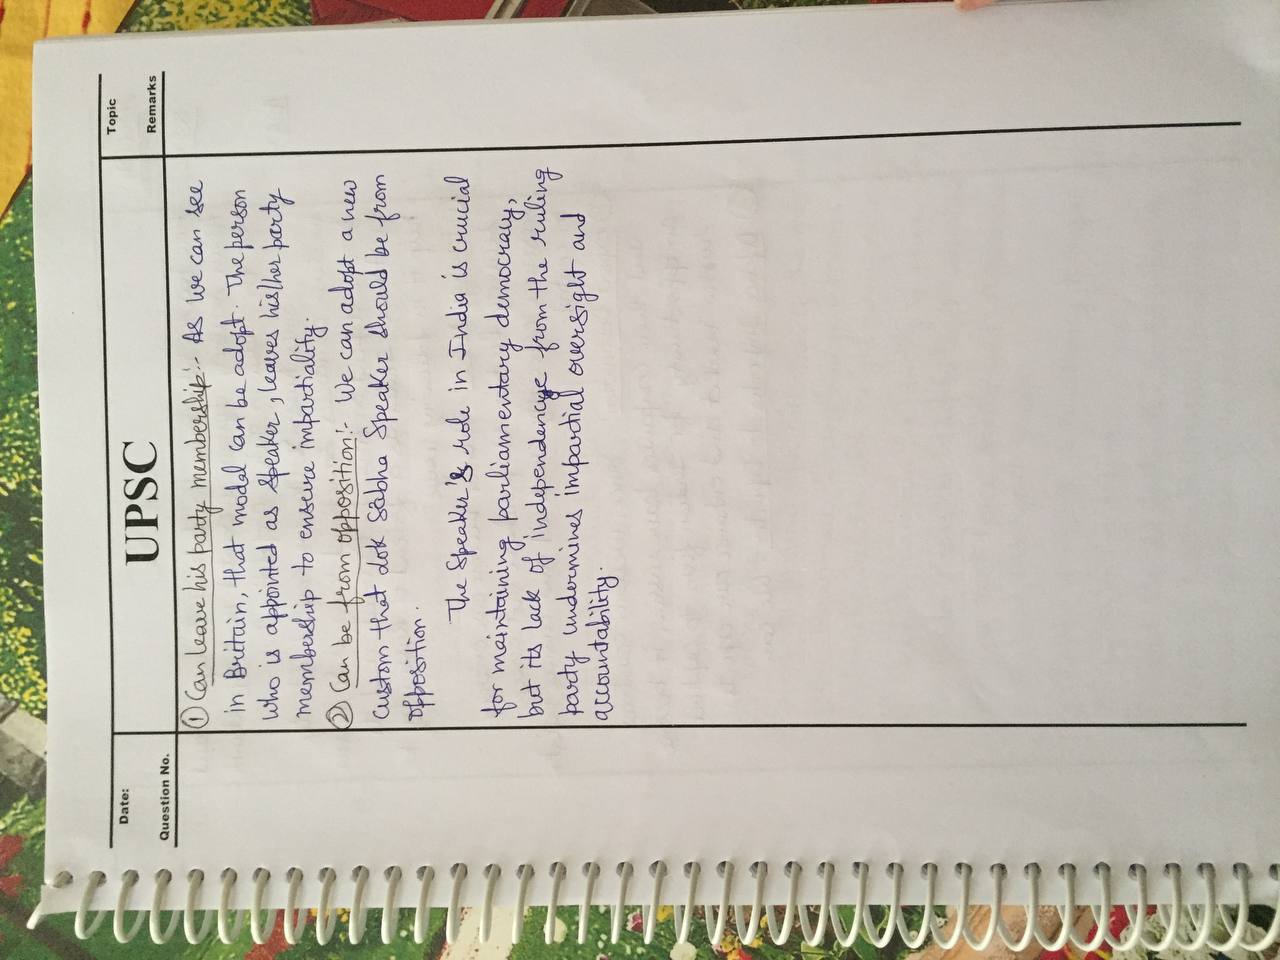 Date:
UPSC
Topic
Question No.
Remarks
① Can leave his party membership:- As we can see
in Britain, that modal can be adopt. The person
who is appointed as speaker, leaves his/her party
membership to ensure impartiality.
② Can be from opposition:- We can adopt a new
custom that Lok Sabha Speaker should be from
opposition.
The Speaker's role in India is crucial
for maintaining parliamentary democracy,
but its lack of independence from the ruling
party undermines impartial oversight and
accountability.